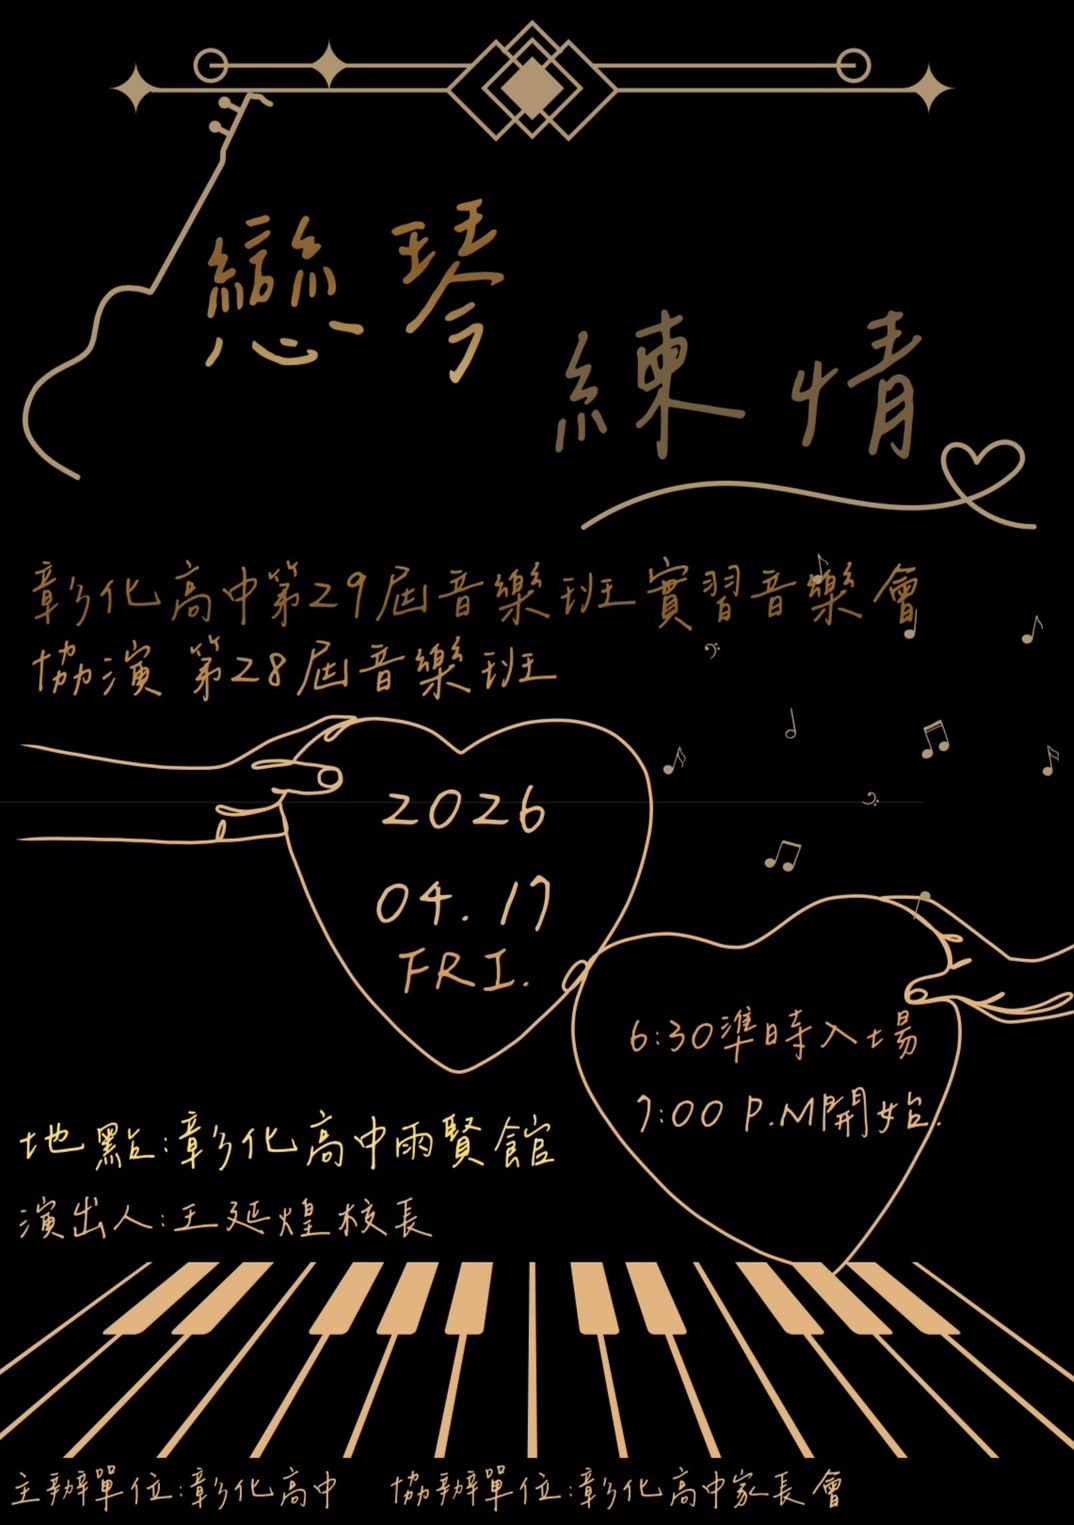 戀琴
練情
彰化高中第29屆音樂班實習音樂會
協演 第28屆音樂班
2026
04.17
FRI.
6:30準時入場
7:00 P.M開始.
地點:彰化高中雨賢館
演出人:王延煌校長
主辦單位:彰化高中 協辦單位:彰化高中家長會